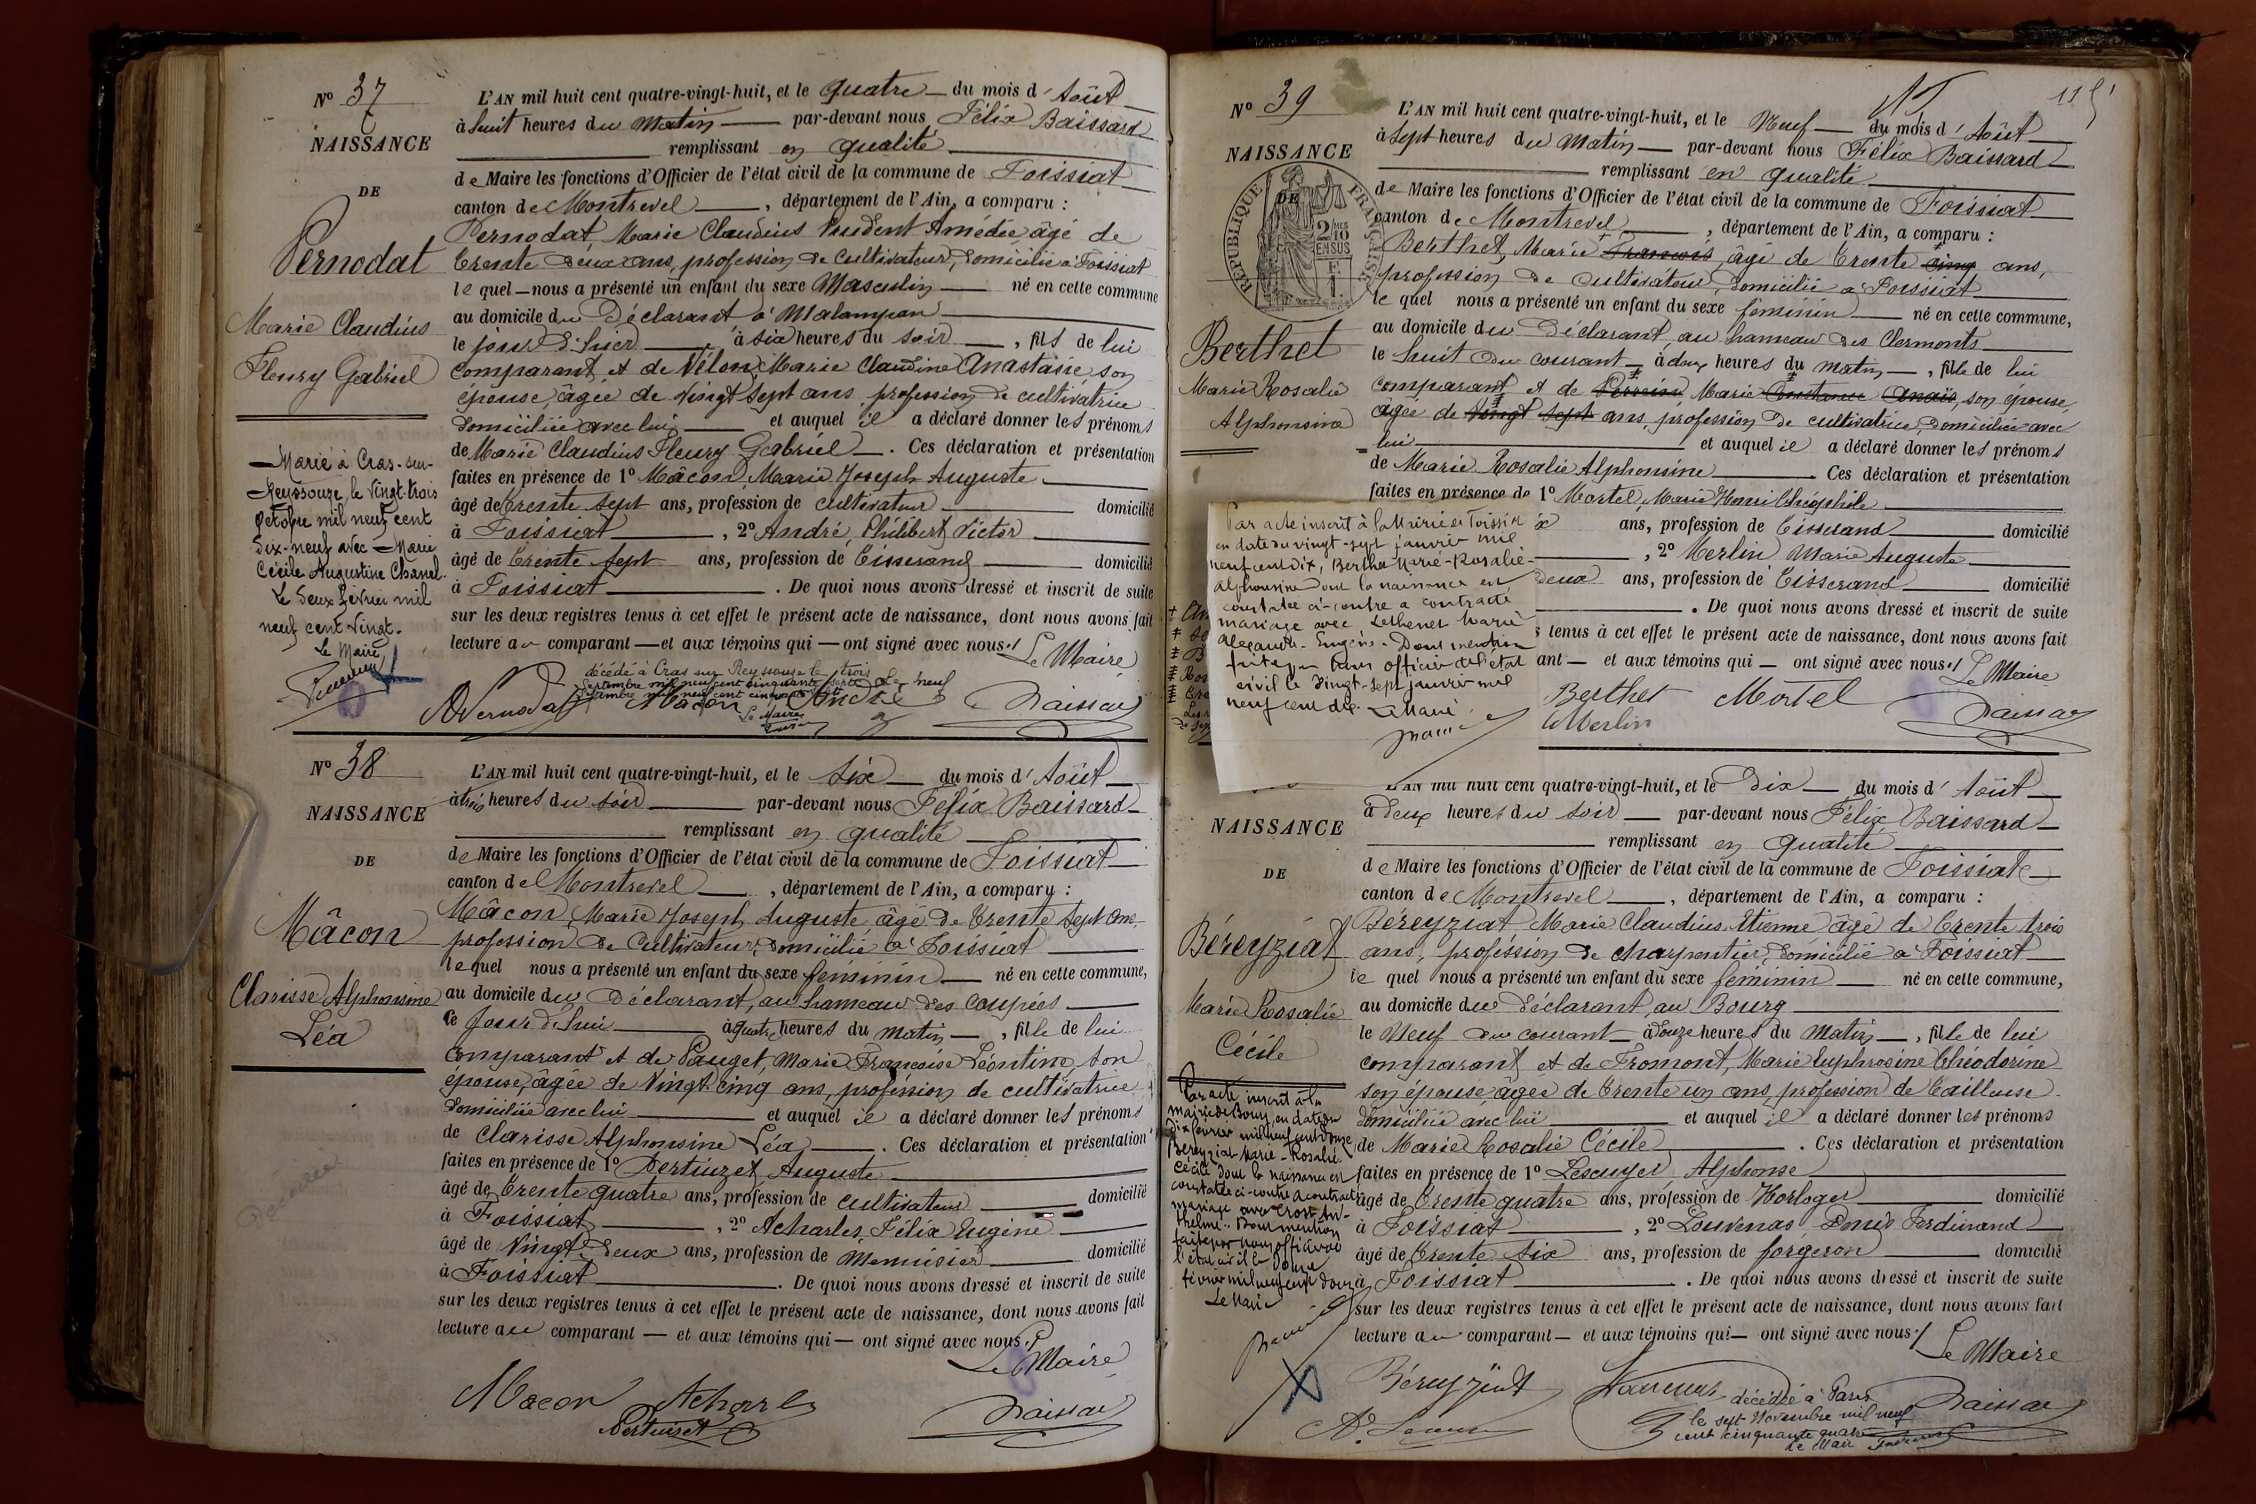 N° 37
NAISSANCE
DE
Pernodat
Marie Claudius
Fleury Gabriel
Marié à Cras-sur-
Reyssouze, le vingt-trois
octobre mil neuf cent
dix-neuf avec Marie
Cécile Augustine Chanel.
Le deux février mil
neuf cent vingt.
Le Maire,
L'AN mil huit cent quatre-vingt-huit, et le quatre du mois d'Août
à huit heures du Matin par-devant nous Félix Baissard
remplissant en qualité
de Maire les fonctions d'Officier de l'état civil de la commune de Foissiat
canton de Montrevel, département de l'Ain, a comparu :
Pernodat, Marie Claudius Prudent Amédée âgé de
trente deux ans, profession de cultivateur, domicilié à Foissiat
lequel nous a présenté un enfant du sexe Masculin né en cette commune
au domicile du Déclarant à Malampan
le jour d'hier à six heures du soir, fils de lui
comparant et de Vélon Marie Claudine Anastasie son
épouse, âgée de vingt sept ans, profession de cultivatrice
domiciliée avec lui et auquel il a déclaré donner les prénoms
de Marie Claudius Fleury Gabriel. Ces déclaration et présentation
faites en présence de 1° Mâcon, Marie Joseph Auguste
âgé de trente sept ans, profession de cultivateur domicilié
à Foissiat, 2° André, Philibert Victor
âgé de trente sept ans, profession de tisserand domicilié
à Foissiat. De quoi nous avons dressé et inscrit de suite
sur les deux registres tenus à cet effet le présent acte de naissance, dont nous avons fait
lecture au comparant et aux témoins qui ont signé avec nous./ Le Maire
décédé à Cras sur Reyssouze le trois
Septembre mil neuf cent cinquante sept. Le neuf
Septembre mil neuf cent cinquante sept
Le Maire
Pernodat Mâcon André Baissard
N° 38
NAISSANCE
DE
Mâcon
Clarisse Alphonsine
Léa
L'AN mil huit cent quatre-vingt-huit, et le six du mois d'Août
à trois heures du soir par-devant nous Félix Baissard
remplissant en qualité
de Maire les fonctions d'Officier de l'état civil de la commune de Foissiat
canton de Montrevel, département de l'Ain, a comparu :
Mâcon, Marie Joseph Auguste âgé de trente sept ans,
profession de cultivateur, domicilié à Foissiat
lequel nous a présenté un enfant du sexe feminin né en cette commune,
au domicile du Déclarant, au hameau des Coupées
le jour d'hui à quatre heures du matin, fille de lui
comparant et de Pauget, Marie Françoise Léontine, son
épouse, âgée de vingt cinq ans, profession de cultivatrice
domiciliée avec lui et auquel il a déclaré donner les prénoms
de Clarisse Alphonsine Léa. Ces déclaration et présentation
faites en présence de 1° Pertiuzet, Auguste
âgé de trente quatre ans, profession de cultivateur domicilié
à Foissiat, 2° Acharles, Félix Eugène
âgé de vingt deux ans, profession de Menuisier domicilié
à Foissiat. De quoi nous avons dressé et inscrit de suite
sur les deux registres tenus à cet effet le présent acte de naissance, dont nous avons fait
lecture au comparant et aux témoins qui ont signé avec nous./
Le Maire
Macon Acharles
Pertuiset Baissard
115
N° 39
NAISSANCE
DE
RÉPUBLIQUE FRANÇAISE
2/10 EN SUS
Berthet
Marie Rosalie
Alphonsine
L'AN mil huit cent quatre-vingt-huit, et le Neuf du mois d'Août
à sept heures du Matin par-devant nous Félix Baissard
remplissant en qualité
de Maire les fonctions d'Officier de l'état civil de la commune de Foissiat
canton de Montrevel, département de l'Ain, a comparu :
Berthet, Marie François, âgé de trente cinq ans,
profession de cultivateur, domicilié à Foissiat
le quel nous a présenté un enfant du sexe feminin né en cette commune,
au domicile du Déclarant, au hameau des Clermonts
le huit du courant à deux heures du matin, fille de lui
comparant et de Marie Constance Anaïs, son épouse,
âgée de vingt sept ans, profession de cultivatrice, domiciliée avec
lui et auquel il a déclaré donner les prénoms
de Marie Rosalie Alphonsine Ces déclaration et présentation
faites en présence de 1° Mortel, Marie Henri Théophile
ans, profession de tisserand domicilié
, 2° Merlin Marie Auguste
deux ans, profession de tisserand domicilié
. De quoi nous avons dressé et inscrit de suite
tenus à cet effet le présent acte de naissance, dont nous avons fait
ant et aux témoins qui ont signé avec nous./ Le Maire
Berthet Mortel
Merlin Baissard
Par acte inscrit à la Mairie de Foissiat
en date du vingt-sept janvier mil
neuf cent dix, Berthet Marie-Rosalie-
Alphonsine dont la naissance est
constatée ci-contre a contracté
mariage avec Marie
Eugène. Dont mention
faite par nous officier de l'état
civil le vingt-sept janvier mil
neuf cent dix. Le Maire
NAISSANCE
DE
Béreyziat
Marie Rosalie
Cécile
L'AN mil huit cent quatre-vingt-huit, et le Dix du mois d'Août
à deux heures du soir par-devant nous Félix Baissard
remplissant en qualité
de Maire les fonctions d'Officier de l'état civil de la commune de Foissiat
canton de Montrevel, département de l'Ain, a comparu :
Béreyziat, Marie Claudius Etienne âgé de trente trois
ans, profession de charpentier, domicilié à Foissiat
le quel nous a présenté un enfant du sexe feminin né en cette commune,
au domicile du déclarant, au Bourg
le Neuf du courant à onze heures du Matin, fille de lui
comparant et de Fromont, Marie Euphrosine Théodorine
son épouse, âgée de trente un ans, profession de tailleuse
domiciliée avec lui et auquel il a déclaré donner les prénoms
de Marie Rosalie Cécile. Ces déclaration et présentation
faites en présence de 1° Lescuyer Alphonse
âgé de trente quatre ans, profession de Horloger domicilié
à Foissiat, 2° Louvenas Denis Ferdinand
âgé de trente six ans, profession de forgeron domicilié
à Foissiat. De quoi nous avons dressé et inscrit de suite
sur les deux registres tenus à cet effet le présent acte de naissance, dont nous avons fait
lecture au comparant et aux témoins qui ont signé avec nous./ Le Maire
Par acte inscrit à la
mairie de Bourg en date du
dix février mil neuf cent douze
Béreyziat Marie-Rosalie
Cécile dont la naissance est
constatée ci-contre a contracté
mariage avec Crost An-
thelme. Dont mention
faite par nous officier de
l'état civil le douze
février mil neuf cent douze
Le Maire
Béreyziat
décédée à Paris
le sept Novembre mil neuf
cent cinquante quatre
Le Maire
Baissard